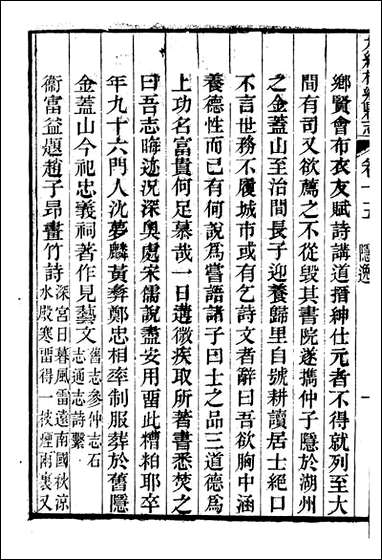 鄉賢會布衣友賦詩講道搢紳仕元者不得就列至大
間有司又欲薦之不從毁其書院遂攜仲子隱於湖州
之金蓋山至治間長子迎養歸里自號耕讀居士絕口
不言世務不履城市或有乞詩文者辭曰吾欲胸中涵
養德性而已有何說為嘗語諸子曰士之品三道德為
上功名富貴何足慕哉一日遘微疾取所著書悉焚之
曰吾志晦迹況深奧處宋儒說盡安用畱此糟粕耶卒
年九十六門人沈夢麟黃彝鄭忠相率制服葬於舊隱
金蓋山今祀忠義祠著作見藝文
舊志參仲志石
志通志詩繫
衞富益題趙子昂畫竹詩
深宮日暮風雷遠南國秋涼
水殿寒畱得一枝煙雨裏又
卷十五
隱逸
一